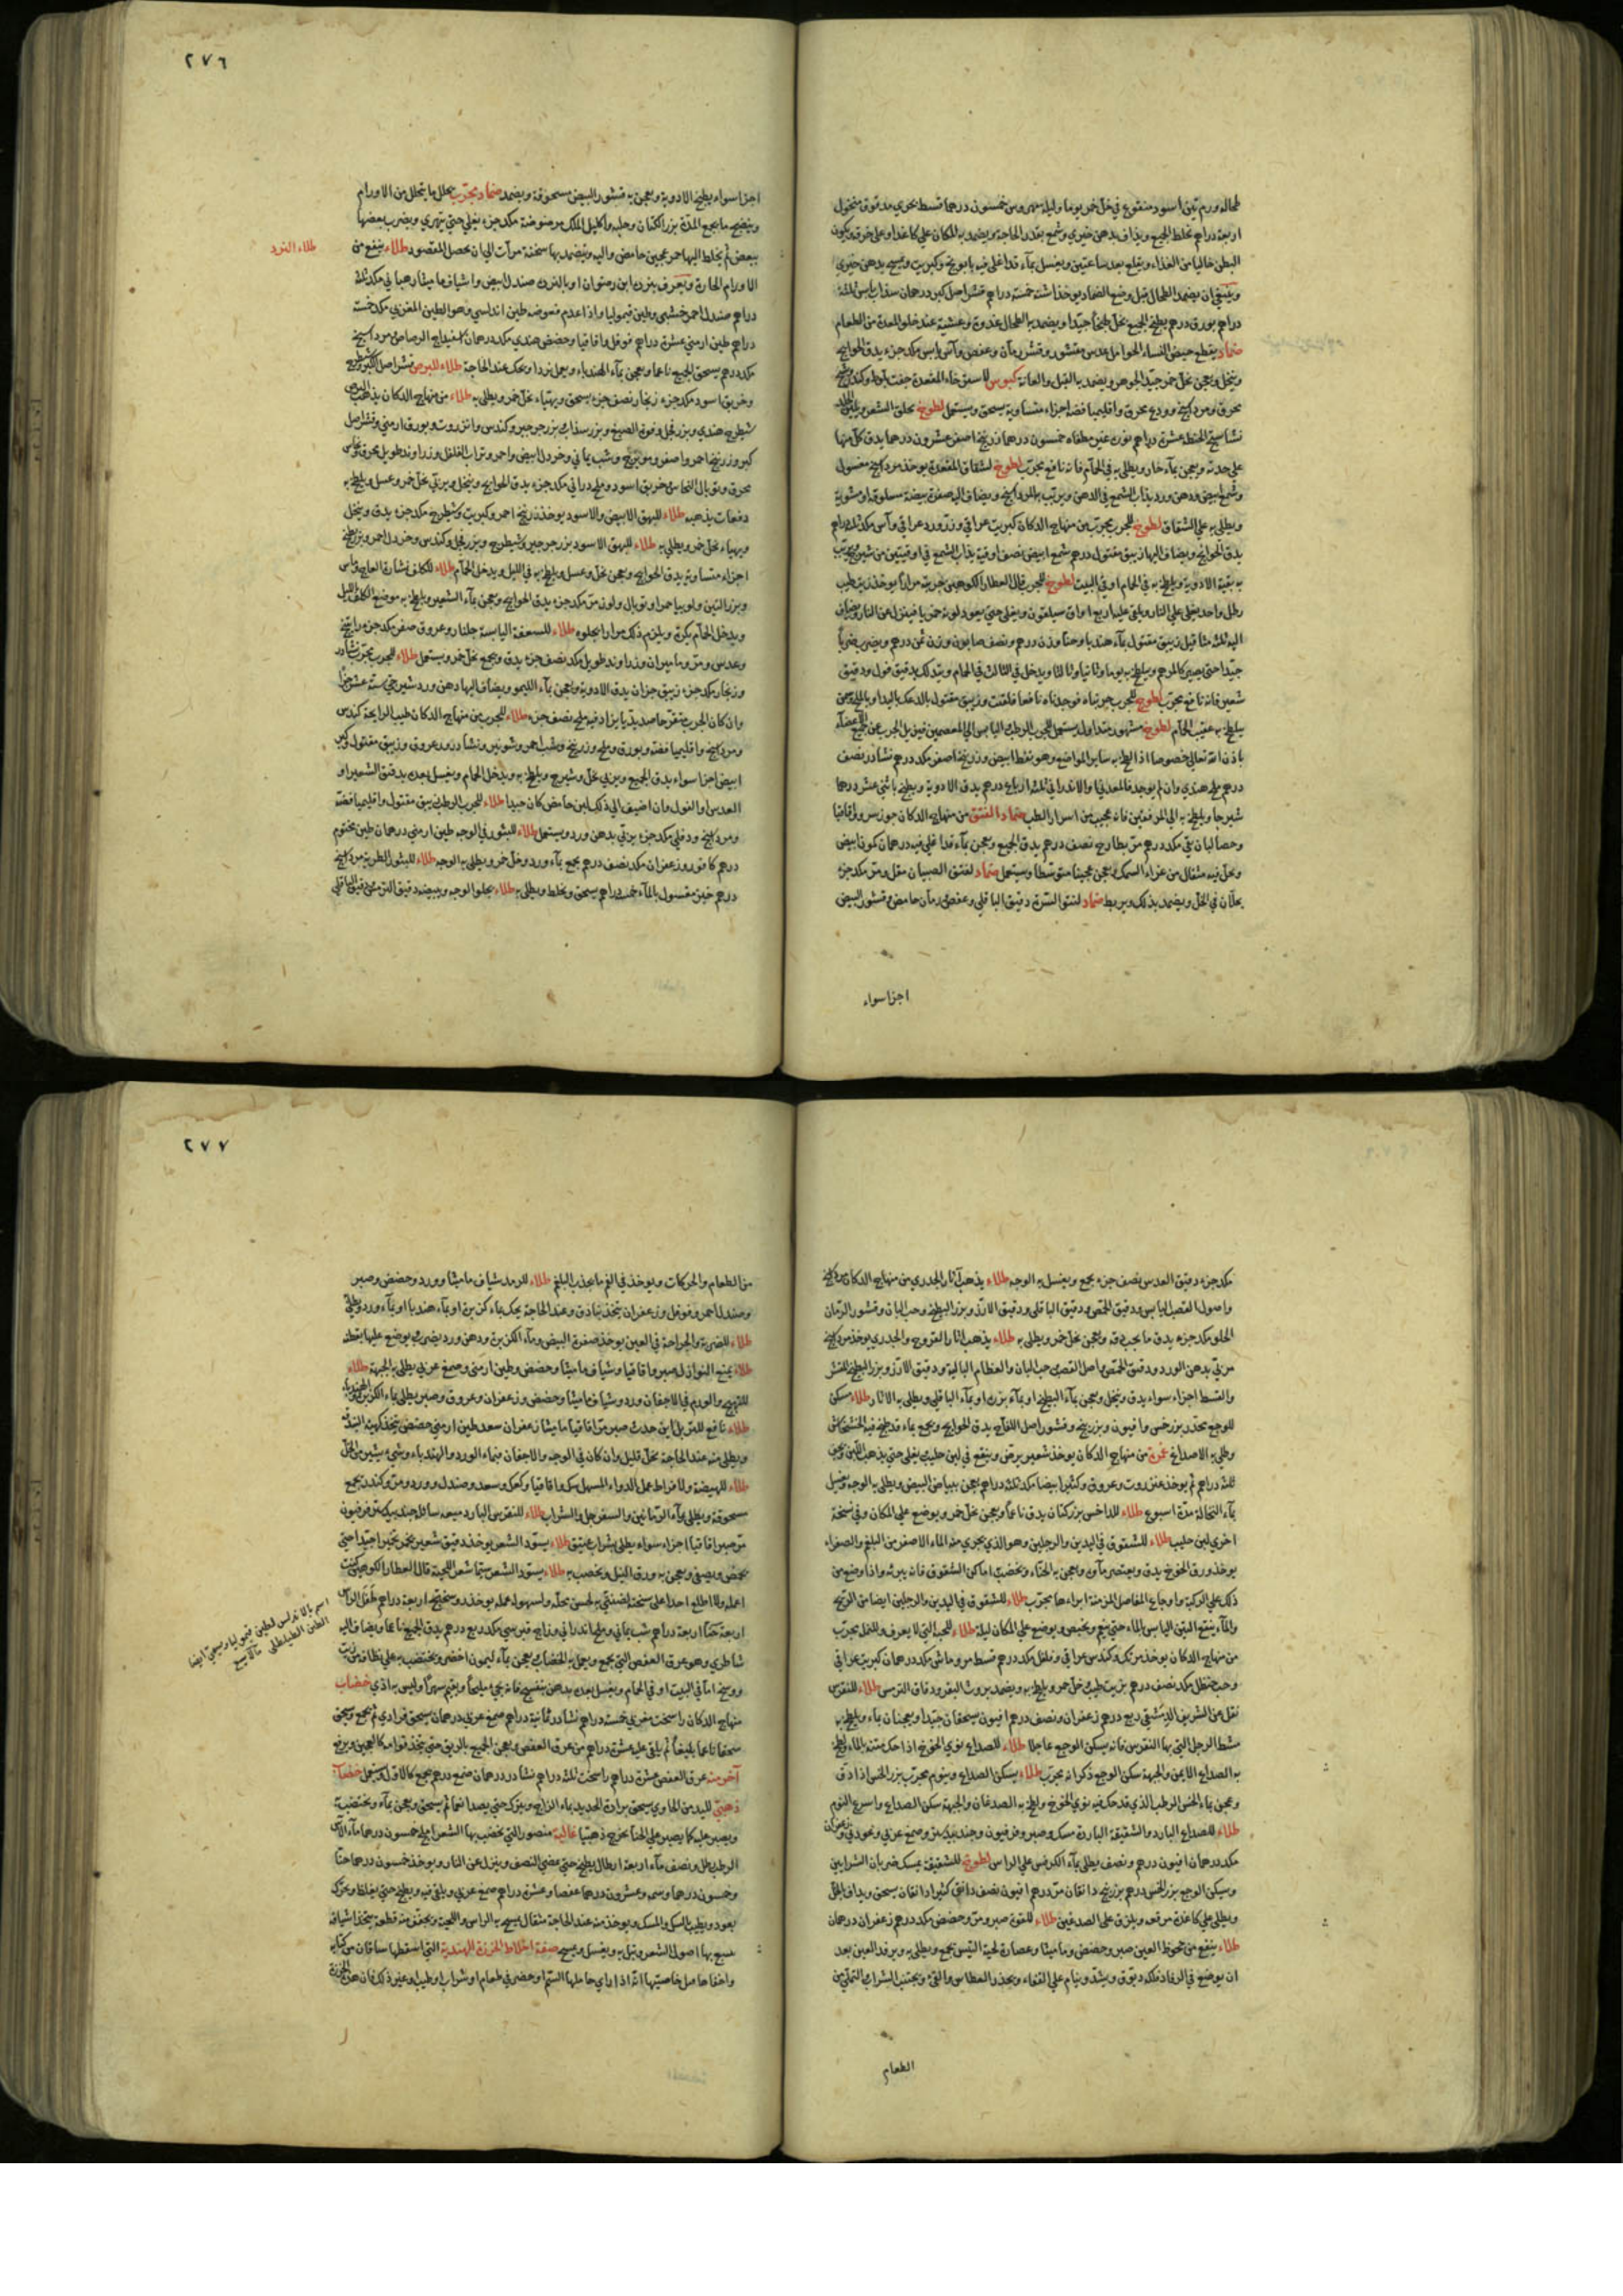 طحاله ورم تين اسود منقوع في خل خمر يوما وليلة مهروس خمسون درهما قسط بحري مدقوق منخول
اربعة دراهم تخلط الجميع ويذاف بدهن خيري وشمع بقدر الحاجة ويضمد به المكان على كاغد او على خرق ويكون
البطن خاليا من الغذاء ويقلع بعد ساعتين ويغسل بماء قد اغلي فيه بابونج وكبريت ويمسح بدهن خيري
وينبغي ان يضمد الطحال قبل وضع الضماد يوخذ اشنه خمسة دراهم قشر اصل كبر درهمان سذاب يابس ثلثة
دراهم بورق درهم يطبخ الجميع بخل طبخا جيدا ويضمد به الطحال غدوة وعشية عند خلو المعدة من الطعام
ضماد يقطع حيض النساء الحوامل عدس مقشور وقشر رمان وعفص وآس يابس مكد جزء يدق الحوايج
وينخل ويعجن بخل خمر جيد الجوهر ويضمد به القبل والعانة كبوس لاسترخاء المقعدة جفت بلوط وكندر
محرق ومرداسنج وودع محرق واقليميا فضة اجزاء متساوية يسحق ويستعمل لطوخ يحلق الشعر
نشاستج الحنطة عشرة دراهم نورة غير مطفاه خمسون درهما زرنيخ اصفر عشرون درهما يدق كل منها
على حدته ويعجن بماء حار ويطلى به في الحمام فانه نافع مجرب لطوخ لشقاق المقعدة يوخذ مرداسنج مغسول
وشمع ابيض ودهن ورد يذاب الشمع في الدهن ويرتب بها المرداسنج ويضاف اليه صفرة بيضة مسلوقة او مشوية
ويطلى به على الشقاق لطوخ للجرب مجرب من منهاج الدكان كبريت عراقي وزر ورد عراقي وآس مكد ثلثة دراهم
يدق الحوايج ويضاف اليها زيبق مقتول درهم شمع ابيض نصف اوقية يذاب الشمع في اوقيتين من شيرج ويرتب
به بقية الادوية ويلطخ به في الحمام او في البيت لطوخ للجرب قال العطار الكوهيني جربته مرارا يوخذ زيت طيب
رطل واحد يغلى على النار ويلقى عليه اربع اواق سيلقون ويغلى حتى يعود لونه خمريا فينزل عن النار ويضاف
اليه ثلثة مثاقيل زيبق مقتول بماء هندبا وحنا وزن درهم ونصف صابون وزن ثمن درهم ويضرب ضربا
جيدا حتى يصير كالمرهم ويلطخ به يوما وثانيا وثالثا ويدخل في الثالث في الحمام ويتدلك بدقيق فول ودقيق
شعير فانه نافع مجرب لطوخ للجرب جربناه فوجدناه نافعا قلفنت وزيبق مقتول بالدعك باليد او بالملح وسمن
يلطخ به عقيب الحمام لطوخ مشهور متداول يستعمل للجرب الرطب واليابس الى المعصمين فيزيل الجرب عن جميع الاعضاء
باذن الله تعالى خصوصا اذا لطخ به ساير المواضع وهو نفط ابيض وزرنيخ اصفر مكد درهم نشادر نصف
درهم ملح هندي وان لم يوجد فالمعدني او الاندراني ثلثة ارباع درهم يدق الادوية ويطبخ باثني عشر درهما
شيرجا ويلطخ به الى المرفقين فانه عجيب من اسرار الطب ضماد الفتق من منهاج الدكان جوز سرو واقاقيا
وحصا لبان نقي مكد درهم مر بطارخ نصف درهم يدق الجميع ويعجن بماء قد اغلي فيه درهمان كمون ابيض
وحل فيه مثقال من غراء السمك ويعجن عجينا متوسطا ويستعمل ضماد لفتق الصبيان مقل ومر مكد جزء
يحلان في الخل ويضمد بذلك ويربط ضماد لنتو السرة دقيق الباقلي وعفص ورمان حامض وقشور البيض
اجزا سواء
٢٧٦
اجزا سواء يطبخ الادوية ويعجن به قشور البيض مسحوقة ويضمد ضماد مجرب يحلل ما يتحلل من الاورام
وينضج ما يجمع المدة بزر الكتان وحلبه واكليل الملك مرضوضة مكد جزء يغلى حتى يتهري ويضرب بعضها
ببعض ثم يخلط اليها خمر عجين حامض والية ويضمد بها سخنة مرات الى ان يحصل المقصود طلاء ينفع من
طلاء النرد
الاورام الحارة ويعرف بنرد ابن رضوان او بالنرد صندل ابيض واشياف ماميثا رهباني مكد ثلثة
دراهم صندل احمر خشبي وطين قيموليا واذا عدم فعوضه طين اندلسي وهو الطين المغربي مكد خمسة
دراهم طين ارمني عشرة دراهم فوفل واقاقيا وحضض هندي مكد درهمان اسفيداج الرصاص مرداسنج
مكد درهم يسحق الجميع ناعما ويعجن بماء الهندباء ويعمل نردا ويحك عند الحاجة طلاء للبرص قشر اصل الكبر وشيطرج
وخربق اسود مكد جزء زنجار نصف جزء يسحق ويهياء بخل خمر ويطلى به طلاء من منهاج الدكان يذهب البرص
شيطرج هندي وبزر فجل وفوة الصبغ وبزر سذاب بزر جرجير وكندس وانزروت وبورق ارمني وقشر اصل
كبر وزرنيخ احمر واصفر وموبزج وشب يماني وخردل ابيض واحمر وتراب الفلفل وزراوند طويل محرق ونحاس
محرق وتوبال النحاس وخربق اسود وملح دراني مكد جزء يدق الحوايج وينخل ويربي بخل خمر وعسل ويلطخ به
دفعات يذهبه طلاء للبهق الابيض والاسود يوخذ زرنيخ احمر وكبريت وشيطرج مكد جزء يدق وينخل
ويهياء بخل خمر ويطلى به طلاء للبهق الاسود بزر جرجير وشيطرج وبزر فجل وكندس وخردل احمر وبزر بطيخ
اجزاء متساوية يدق الحوايج ويعجن بخل وعسل ويلطخ به في الليل ويدخل الحمام طلاء للكلف نشارة العاج
وبزر التين ولوبيا حمرا وتوبال ولوز مر مكد جزء يدق الحوايج ويعجن بماء الشعير ويلطخ به موضع الكلف بالليل
ويدخل الحمام بكرة ويلزم ذلك مرارا يجلوه طلاء للسعفة اليابسة جلنار وعروق صفر مكد جزء راتينج
وعدس ومر وماميران وزراوند طويل مكد نصف جزء يدق ويجمع بخل خمر ويستعمل طلاء للجرب مجرب نشادر
وزنجار مكد جزء زيبق جزان يدق الادوية ويعجن بماء الليمو ويضاف اليها دهن ورد شيرجي ستة عشر جزا
وان كان الجرب متقرحا صديديا يزاد فيه ملح نصف جزء طلاء للجرب من منهاج الدكان طيب الرايحة كندس
ومرداسنج واقليميا فضة وبورق وملح وزرنيخ وشب احمر وشونيز ونشادر وعروق وزيبق مقتول وكبريت
ابيض اجزا سواء يدق الجميع ويربي بخل وشيرج ويلطخ به ويدخل الحمام ويغسل بعده بدقيق الشعير او
العدس او الفول وان اضيف الى ذلك لبن حامض كان جيدا طلاء للجرب الرطب زيبق مقتول واقليميا فضة
ومرداسنج ودفلي مكد جزء يربي بدهن ورد ويستعمل طلاء للبثور في الوجه طين ارمني درهمان طين مختوم
درهم كافور وزعفران مكد نصف درهم يجمع بماء ورد وخل خمر ويطلى به الوجه طلاء للبثور الطرية مرداسنج
درهم خبز مغسول بالماء خمسة دراهم يسحق ويخلط ويطلى به طلاء يجلوا الوجه ويبيضه دقيق الترمس ودقيق الباقلي
مكد جزء دقيق العدس نصف جزء يجمع ويغسل به الوجه طلاء يذهب آثار الجدري من منهاج الدكان مرداسنج
واصول القصب اليابس ودقيق الحمص ودقيق الباقلى ودقيق الارز وبزر البطيخ وحب البان وقشور الرمان
الحلو مكد جزء يدق ما يجب دقه ويعجن بخل خمر ويطلى به طلاء يذهب اثار القروح والجدري يوخذ مرداسنج
مربي بدهن الورد ودقيق الحمص واصل القصب حب البان والعظام البالية ودقيق الارز وبزر البطيخ المقشر
والقسط اجزاء سواء يدق وينخل ويعجن بماء البطيخ او بماء بزره او بماء الباقلي ويطلى به الاثار طلاء مسكن
للوجع مخدر بزر خس وافيون وبزر بنج وقشور اصل اللفاح يدق الحوايج ويجمع بماء قد طبخ فيه الخشخاش
ويطلى به الاصداغ غمرة من منهاج الدكان يوخذ شعير يرض وينقع في لبن حليب يغلى حتى يذهب اللبن
ثلثة دراهم ثم يوخذ عنزروت وعروق وكثيرا بيضا مكد ثلثة دراهم يعجن ببياض البيض ويطلى به الوجه ويغسل
بماء النخالة مدة اسبوع طلاء للداخس بزر كتان يدق ناعما ويعجن بخل خمر ويوضع على المكان وفي نسخة
اخرى لبن حليب طلاء للشقوق في اليدين والرجلين وهو الذي يجري منه الماء الاصفر من البلغم والصفراء
يوخذ ورق الخوخ يدق ويعتصر ماوه ويعجن به الحناء وتخضب اماكن الشقوق فانه يبرئه واذا وضع من
ذلك على الركبة واوجاع المفاصل المزمنة ابراءها مجرب طلاء للشقوق في اليدين والرجلين ايضا من الريح
والماء ينقع التين اليابس بالماء حتى ينعم ويخبص ويوضع على المكان ليلة طلاء للحبة التي لا يعرف والنمل مجرب
من منهاج الدكان يوخذ مرتك وكندس عراقي وفلفل مكد درهم قسط مر وماش مكد درهمان كبريت عراقي
وحب حنظل مكد نصف درهم بزيت طيب وخل خمر ويلطخ به ويضمد بروث البقر ودقاق الترمس طلاء للنقرس
نقل عن الشريف الدمشقي ربع درهم زعفران ونصف درهم افيون يسحقان جيدا ويعجنان بماء ويلطخ به
مشط الرجل التي بها النقرس فانه يسكن الوجع عاجلا طلاء للصداع نوي الخوخ اذا حك متنه بالماء ولطخ
به الصداغ الايمن والجبهة سكن الوجع ذكر انه مجرب طلاء يسكن الصداع وينوم مجرب بزر الخس اذا دق
وعجن بماء الخس الرطب الذي قد حك فيه نوي الخوخ ولطخ به الصدغان والجبهة سكن الصداع واسرع النوم
طلاء للصداع البارد والشقيقة الباردة مسك وصبر وفرفيون وجندبيدستر وصمغ عربي وعود قرح وزعفران
مكد درهمان افيون درهم ونصف يطلى بماء الكرفس على الراس لطوخ للشقيقة يمسك ضربان الشرايين
ويسكن الوجع بزر الخس درهم بزر بنج دانقان مر درهم افيون نصف دانق كثيرا دانقان يسحق ويداف بالخل
ويطلى على كاغدة مرقعه ويلزق على الصدغين طلاء للقوة صبر ومر وحضض مكد درهم زعفران درهمان
طلاء ينفع من جحوظ العين صبر وحضض وماميثا وعصارة لحية التيس يجمع ويطلى به وبرفد العين بعد
ان يوضع في الرفادة فلكه ويشد وينام على القفاء ويحذر العطاس والقيء ويجتنب الشراب التملي من
الطعام
٢٧٧
من الطعام والحركات ويوخذ في الفم ما يجذب البلغم طلاء للرمد شياف ماميثا وورد وحضض وصبر
وصندل احمر وفوفل وزعفران يتخذ بنادق وعند الحاجة يحك بماء كزبرة او بماء هندبا او بماء ورد ويطلى
طلاء للضربة والجراحة في العين يوخذ صفرة البيض وماء الكزبرة ودهن ورد يضرب يوضع عليها بقطنه
طلاء يمنع النوازل صبر واقاقيا وشياف ماميثا وحضض وطين ارمني وصمغ عربي يطلى به الجبهة طلاء
للتهيج والورم في الاجفان ورد وشياف ماميثا وحضض وزعفران وعروق وصبر يطلى بماء الكزبرة والهندباء
طلاء نافع للتربل اين حدث صبر مر اقاقيا ماميثا زعفران سعد طين ارمني حضض يتخذ كهيئة البندق
ويطلى منه عند الحاجة بخل قليل وان كان في الوجه والاجفان فبماء الورد والهندباء وشيء يسير من الخل
طلاء للهيضة ولافراط عمل الدواء المسهل سك واقاقيا وكعك وسعد وصندل وورد ومر وكندر يجمع
مسحوقة ويطلى بماء الرمانين والسفرجل والشراب طلاء للنقرس البارد ميعه سائلة جندبيدستر فرفيون
مر صبر اقاقيا اجزاء سواء يطلى بشراب عتيق طلاء يسود الشعر يوخذ دقيق شعير يخمر تخميرا جيدا حتى
يحمض ويصفى ويعجن به ورق النيل ويخضب به طلاء يسود الشعر سيما شعر اللحية قال العطار الكوهيني كنت
اعمله ولا اطلع احدا على نسخته لضنتي به لحسن محله ولسهولة عمله يوخذ روسختج اربعة دراهم
اربعة حنا اربعة دراهم شب يماني وملح اندراني وزاج قبرسي مكد ربع درهم يدق الجميع ناعما ويضاف اليه
شاطري وهو عرق العفص التي يجمع ويعمل به الخضاب يعجن بماء ليمون اخضر ويختضب به على نظافة من زيت
ووسخ اما في البيت او في الحمام ويغسل بعده بدهن بنفسج فانه يجيء مليحا ويقيم شهرا وليس به اذي خضاب
منهاج الدكان راسخت مغربي خمسة دراهم نشادر ثمانية دراهم صمغ عربي درهمان يسحق فرادي ثم يجمع ويسحق
سحقا ناعما بليغا ثم يلقى عليه عشرة دراهم من عرق العفص ويعجن الجميع بالزيت حتى يتخذ قوامه كالعجين ويرفع
آخر منه عرق العفص عشرة دراهم راسخت ثلثة دراهم نشادر درهمان صمغ درهم يجمع كالاول ويستعمل خضاب
ذهبي لليد من الحاوي يسحق برادة الحديد بماء الزاج ويترك حتى يصدا نعما ثم يسحق ويعجن بماء ويختضب به
ويصبر عليه كما يصبر على الحنا يخرج ذهبيا غالية منصور التي يخضب بها الشعر املج خمسون درهما ماء الآس
الرطب رطل ونصف ماء اربعة ارطال يطبخ حتى يمضي النصف وينزل عن النار ويوخذ خمسون درهما حنا
وخمسون درهما وسمه وعشرون درهما عفصا وعشرة دراهم صمغ عربي ويلقى فيه ويطبخ حتى يغلظ ويحرك
بعود ويطيب بالسك والمسك ويوخذ منه عند الحاجة مثقال يمسح به الراس واللحية ويجفف منه قطعة يتخذ اشيافه
يسبغ بها اصول الشعر وتبل به ويغسل ويمسح صفة اخلاط الخرزة الهندية التي اسقطها ساقان من كتابه
واخفاها من خاصيتها انه اذا راي حاملها السم او حضر في طعام او شراب او طيب او غير ذلك فان هذه الخرزة
اسم بالاندلس لطين قيموليا ويسمى ايضا
الطين الطليطلي